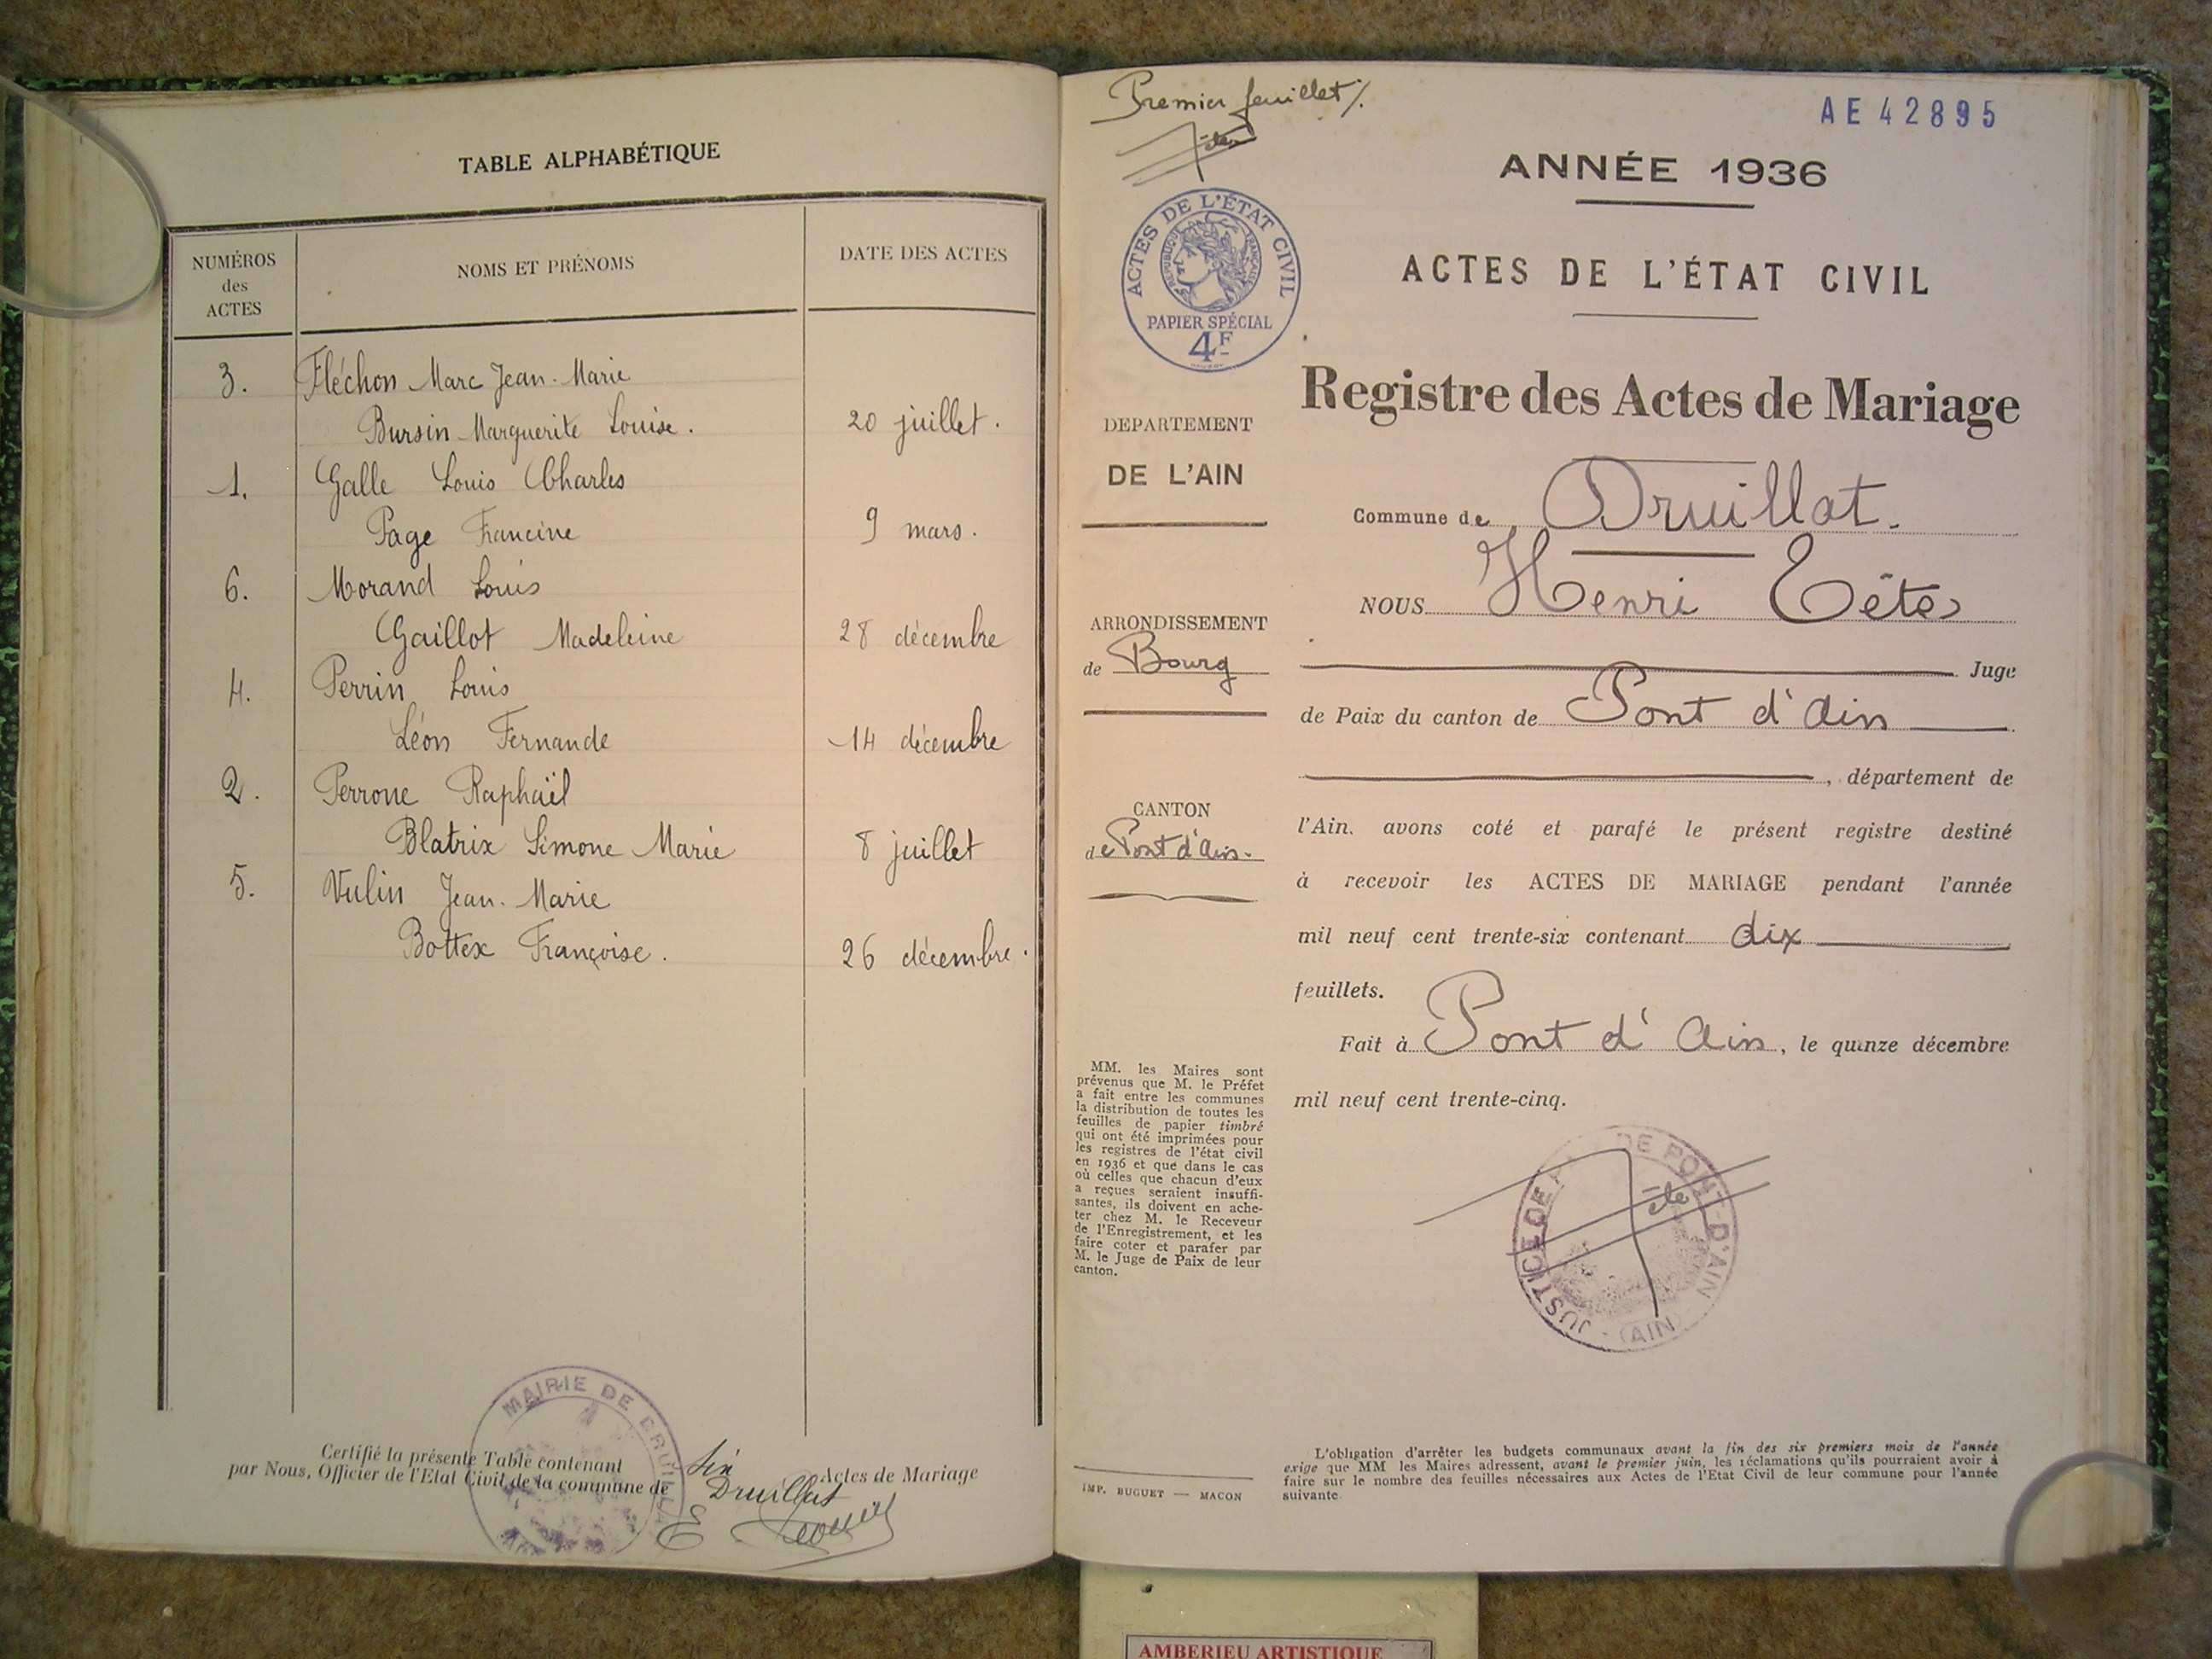 TABLE ALPHABÉTIQUE
NUMÉROS
des
ACTES
NOMS ET PRÉNOMS
DATE DES ACTES
3. Fléchon Marc Jean-Marie
Bursin Marguerite Louise. 20 juillet.
1. Galle Louis Charles
Page Francine 9 mars.
6. Morand Louis
Gaillot Madeleine 28 décembre
4. Perrin Louis
Léon Fernande 14 décembre
2. Perrone Raphaël
Blatrix Simone Marie 8 juillet
5. Vulin Jean-Marie
Bottex Françoise. 26 décembre.
Certifié la présente Table contenant Six Actes de Mariage
par Nous, Officier de l'Etat Civil de la commune de Druillat
MAIRIE DE DRUILLAT
Premier feuillet
Tête
AE 42895
ACTES DE L'ÉTAT CIVIL
RÉPUBLIQUE FRANÇAISE
PAPIER SPÉCIAL
4F
DEPARTEMENT
DE L'AIN
ARRONDISSEMENT
de Bourg
CANTON
de Pont d'Ain.
MM. les Maires sont
prévenus que M. le Préfet
a fait entre les communes
la distribution de toutes les
feuilles de papier timbré
qui ont été imprimées pour
les registres de l'état civil
en 1936 et que dans le cas
où celles que chacun d'eux
a reçues seraient insuffi-
santes, ils doivent en ache-
ter chez M. le Receveur
de l'Enregistrement, et les
faire coter et parafer par
M. le Juge de Paix de leur
canton.
IMP. BUGUET — MACON
ANNÉE 1936
ACTES DE L'ÉTAT CIVIL
Registre des Actes de Mariage
Commune de Druillat.
NOUS Henri Tête
Juge
de Paix du canton de Pont d'Ain
, département de
l'Ain. avons coté et parafé le présent registre destiné
à recevoir les ACTES DE MARIAGE pendant l'année
mil neuf cent trente-six contenant dix
feuillets.
Fait à Pont d'Ain, le quinze décembre
mil neuf cent trente-cinq.
Tête
JUSTICE DE DE PONT-D'AIN (AIN)
L'obligation d'arrêter les budgets communaux avant la fin des six premiers mois de l'année
exige que MM les Maires adressent, avant le premier juin, les réclamations qu'ils pourraient avoir à
faire sur le nombre des feuilles nécessaires aux Actes de l'Etat Civil de leur commune pour l'année
suivante
AMBERIEU ARTISTIQUE